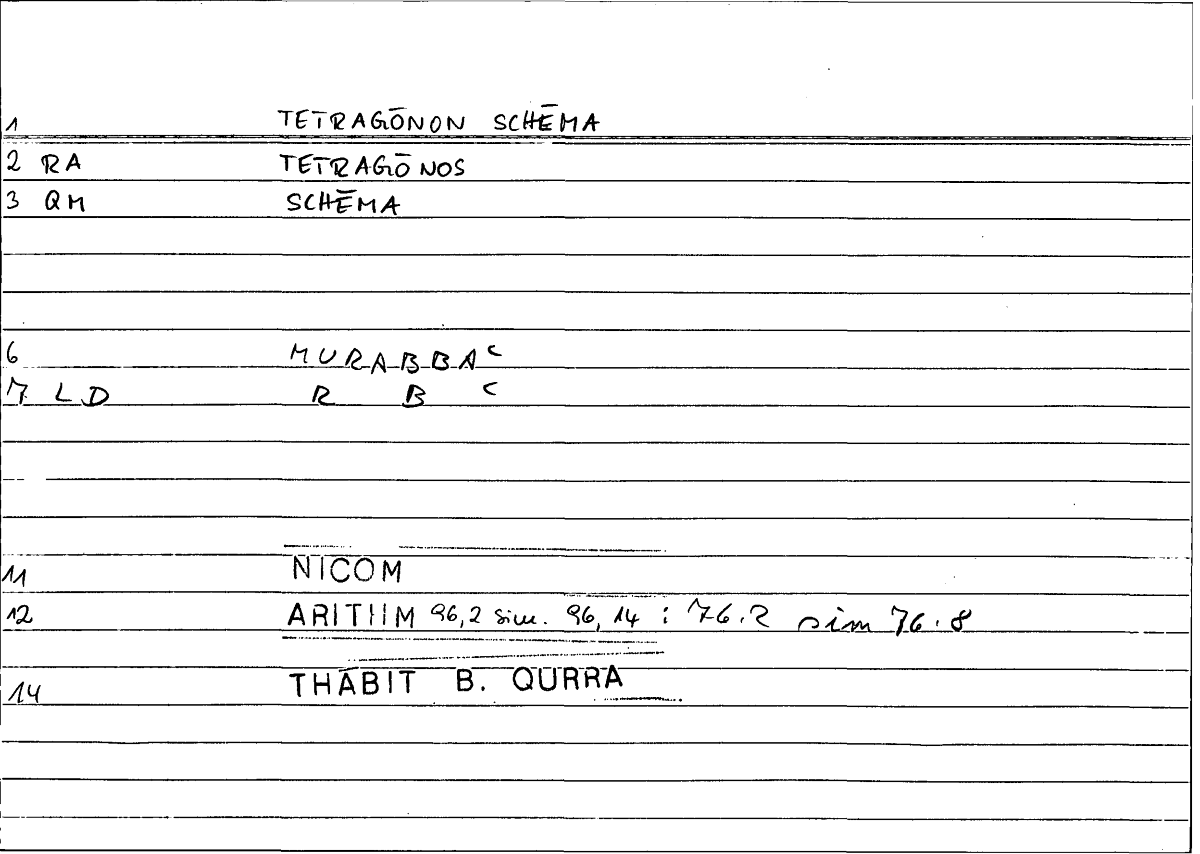 1 TETRAGŌNON SCHĒMA
2 RA TETRAGŌNOS
3 QM SCHĒMA
6 MURABBAʿ
7 LD R B ʿ
11 NICOM
12 ARITHM 96,2 sim. 96,14 : 76.2 sim 76.8
14 THĀBIT B. QURRA